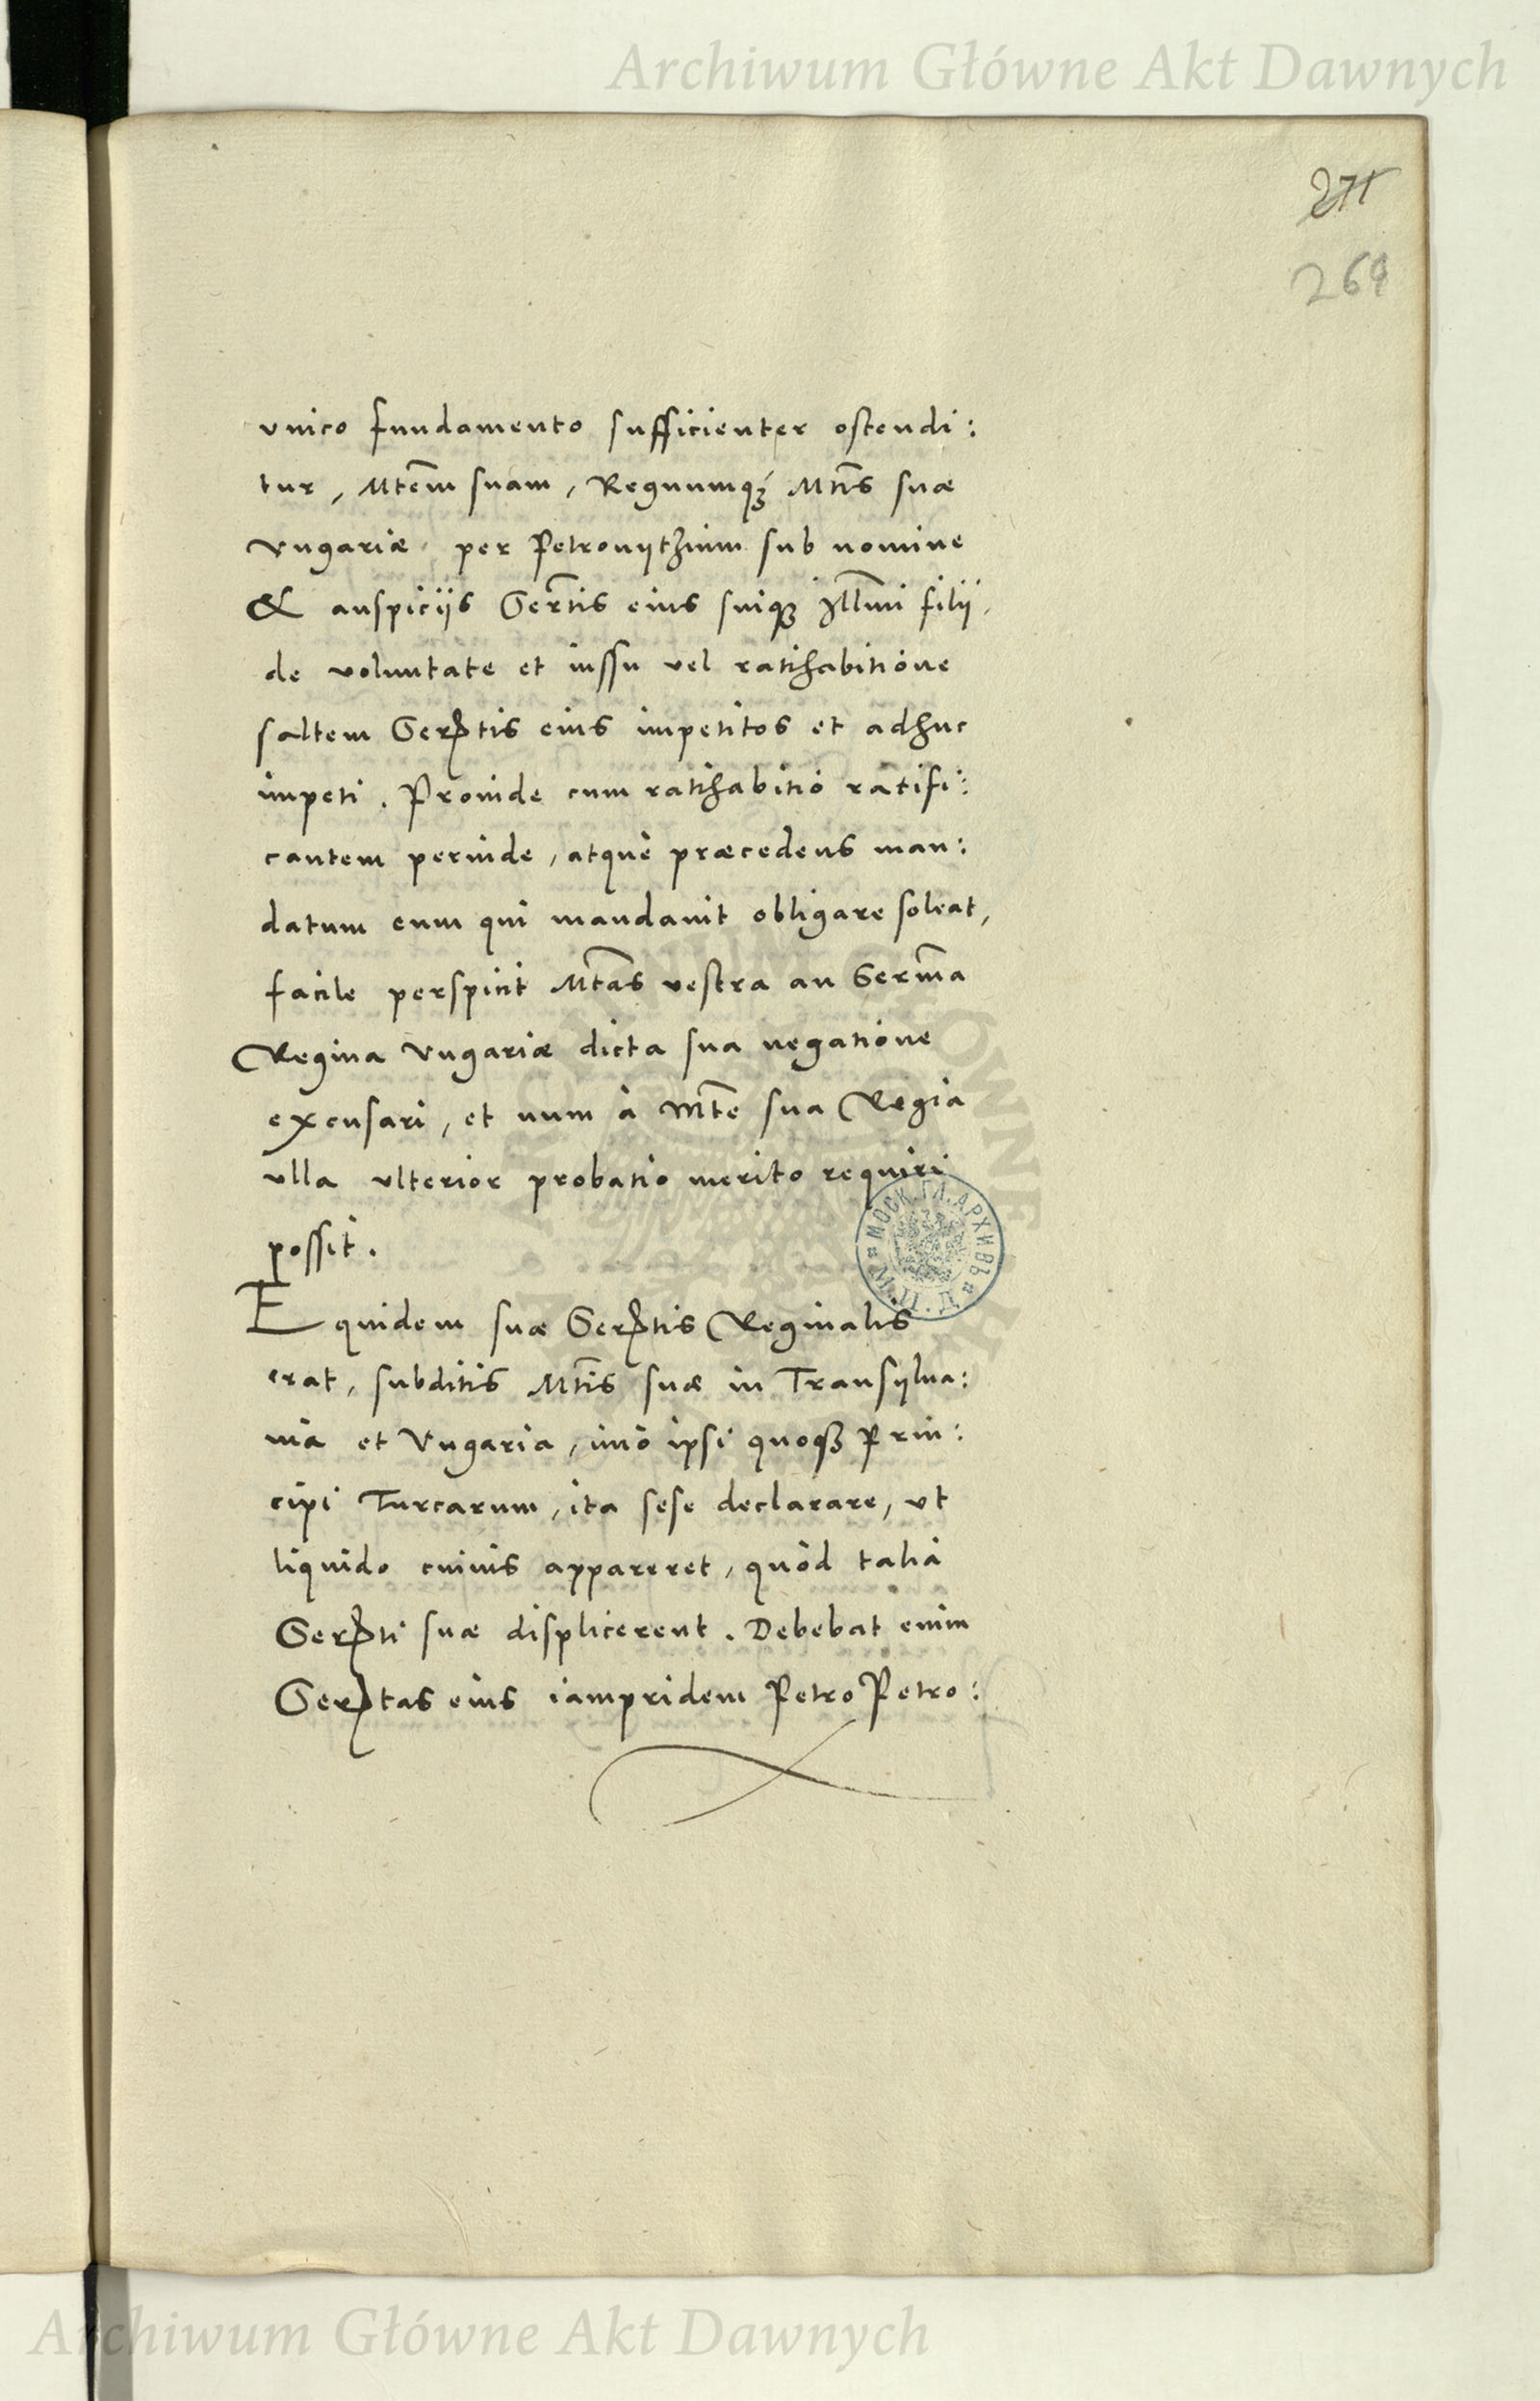 Archiwum Główne Akt Dawnych
271
269
vnico fundamento sufficienter ostendi:
tur, Mtēm suam, Regnumqȝ Mtīs suæ
Vngariæ per Petrovytzium sub nomine
& auspicijs Serītis eius suiqȝ Illmī filij,
de voluntate et iussu vel ratihabitiòne
saltem Serꝑtis eius impetitos et adhuc
impeti. Proinde cum ratihabitiò ratifi:
cantem perinde, atquè præcedens man:
datum eum qui mandauit obligare soleat,
facile perspicit Mtās vestra an Sermā
Regina Vngariæ dicta sua negatiòne
excusari, et num à Mtē sua Regia
ulla vlterior probatio merito requiri
possit.
Equidem suæ Serꝑtis Reginalis
erat, subditis Mtīs suæ in Transylua:
nia et Vngaria, imò ipsi quoqȝ Prin:
cipi Turcarum, ita sese declarare, vt
liquido cuiuis appareret, quòd talia
Serꝑti suæ displicerent. Debebat enim
Serꝑtas eius iampridem Petro Petro:
МОСК. ГЛ. АРХИВЪ
М. И. Д.
Archiwum Główne Akt Dawnych